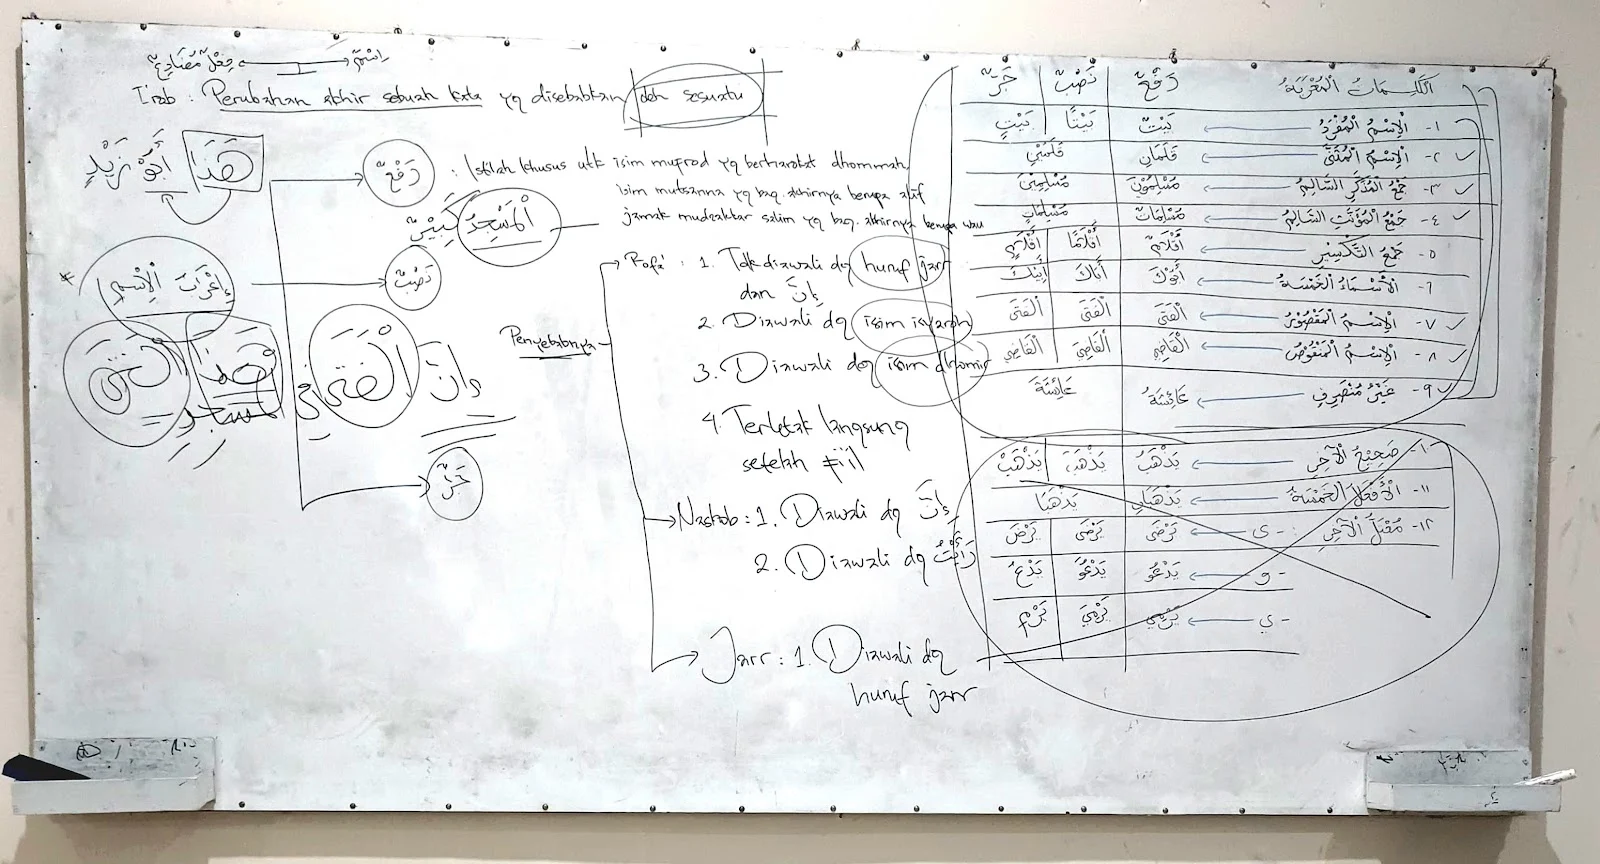 اِسْمٌ فِعْلٌ مُضَارِعٌ
I'rab : Perubahan akhir sebuah kata yg disebabkan oleh sesuatu
هَذَا أَبُوْ زَيْدٍ
رَفْعٌ : Istilah khusus utk isim mufrod yg berharokat dhommah
isim mutsanna yg bag. akhirnya berupa alif
jamak mudzakkar salim yg bag. akhirnya berupa wau
اَلْمَسْجِدُ كَبِيْرٌ
* إِعْرَابُ الْإِسْمِ
نَصْبٌ
جَرٌّ
هَذَا الْفَتَى
إِنَّ الْفَتَى فِي
الْمَسْجِدِ
Penyebabnya
Rofa' : 1. Tdk diawali dg huruf jarr
dan إِنَّ
2. Diawali dg isim isyaroh
3. Diawali dg isim dhomir
4. Terletak langsung
setelah fi'il
Nashob : 1. Diawali dg إِنَّ
2. Diawali dg رَأَيْتُ
Jarr : 1. Diawali dg
huruf jarr
الْكَلِمَاتُ الْمُعْرَبَةُ رَفْعٌ نَصْبٌ جَرٌّ
١- الْاِسْمُ الْمُفْرَدُ بَيْتٌ بَيْتًا بَيْتٍ
٢- الْاِسْمُ الْمُثَنَّى قَلَمَانِ قَلَمَيْنِ
٣- جَمْعُ الْمُذَكَّرِ السَّالِمُ مُسْلِمُوْنَ مُسْلِمِيْنَ
٤- جَمْعُ الْمُؤَنَّثِ السَّالِمُ مُسْلِمَاتٌ مُسْلِمَاتٍ
٥- جَمْعُ التَّكْسِيْرِ أَقْلَامٌ أَقْلَامًا أَقْلَامٍ
٦- الْأَسْمَاءُ الْخَمْسَةُ أَبُوْكَ أَبَاكَ أَبِيْكَ
٧- الْاِسْمُ الْمَقْصُوْرُ الْفَتَى الْفَتَى الْفَتَى
٨- الْاِسْمُ الْمَنْقُوْصُ الْقَاضِي الْقَاضِيَ الْقَاضِي
٩- غَيْرُ مُنْصَرِفٍ عَائِشَةُ عَائِشَةَ
١٠- صَحِيْحُ الْآخِرِ يَذْهَبُ يَذْهَبَ يَذْهَبْ
١١- الْأَفْعَالُ الْخَمْسَةُ يَذْهَبَانِ يَذْهَبَا
١٢- مُعْتَلُّ الْآخِرِ : - ى يَرْضَى يَرْضَى يَرْضَ
- و يَدْعُو يَدْعُوَ يَدْعُ
- ي يَرْمِي يَرْمِيَ يَرْمِ